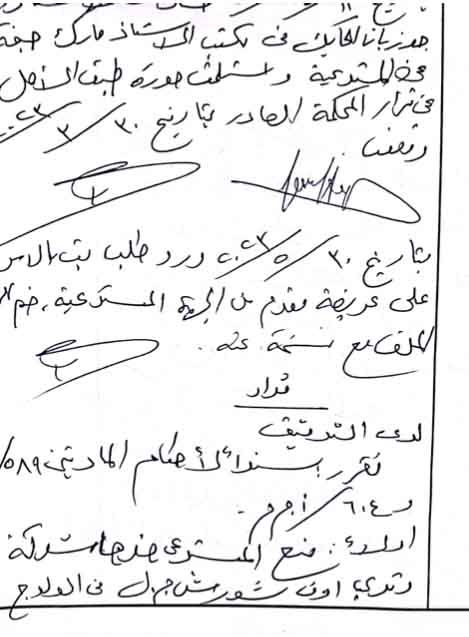 جوزيان الحايك في مكتب الاستاذ مارك حبقة
في المستدعية واستلمت صورة طبق الاصل
في قرار المحكمة الصادر بتاريخ ٣٠/٣/٢٠٢٣
وقعت
بتاريخ ٣٠/٥/٢٠٢٣ ورد طلب بت الامر
على عريضة مقدم من الجهة المستدعية، ضم
الملف مع نسخة عنه.
قرار
لدى التدقيق
نقرر سنداً لأحكام المادتين ٥٨٩/
و ٦٠٤/أ.م.م.
اولاً: منع المستدعى ضدها شركة
اون ش.م.ل في الولوج